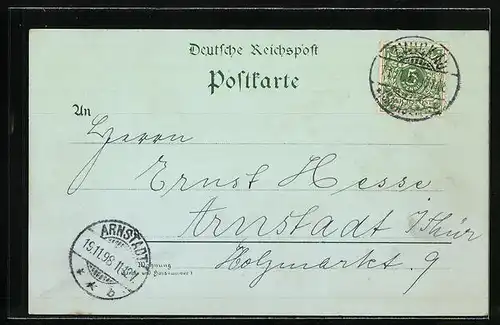 Deutsche Reichspost
Postkarte
An
Herrn
Ernst Hesse
Arnstadt i/Thür
Holzmarkt 9
Wohnung
(Straße und Hausnummer)
5
ARNSTADT
19.11.98
b